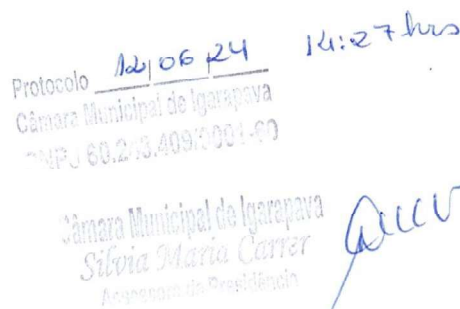 Protocolo 12/06/24 14:27 hrs
Câmara Municipal de Igarapava
CNPJ 60.243.409/0001-60
Câmara Municipal de Igarapava
Silvia Maria Carrer
Assessora da Presidência